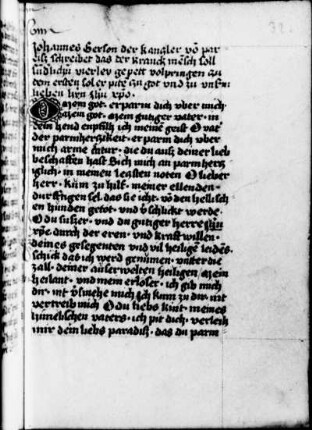 Johannes Gerson der kantzler vō par
isz schreibet das der kranck mēsch soll
vierley gepett volpringen zu
dem ersten sol er pitē zu got vnd zu vnserm
lieben hrn
O mein got erparm dich vber mich
mein got mein gutiger vater in
dein hend enpfilh ich meinē geist O vat
der parmhertzikeit erparm dich vber
mich arme die du aus deiner lieb
beschaffen hast Sich mich an parmhertz
glich in meinen letzsten noten O lieber
herr kum zu hilf meiner ellenden
durstigen sel das sie icht vō den hellisch
en hunden getot vnd vschlickt werde
O du suszer vnd du gutiger herre ihū
xp̄e durch der eren vnd krafft willen
deines gesegenten vnd vil heilgē leidēs
schick das ich werd genūmen vnter die
zall deiner auszerwelten heiligen mein
heilant vnd mein erloser ich gib mich
dir nit vsmehe mich ich kum zu dir nit
vertreib mich O du liebs kint meines
himelischen vaters ich pit dich verleih
mir dein liebs paradisz das du parm